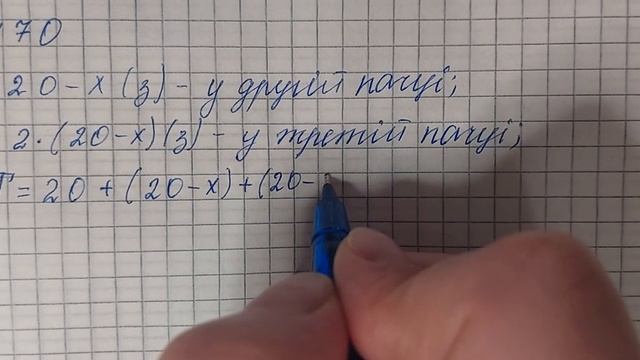 70
20 - x (з) - у другій пачці;
2·(20-x)(з) - у третій пачці;
= 20 + (20 - x) + (20 -